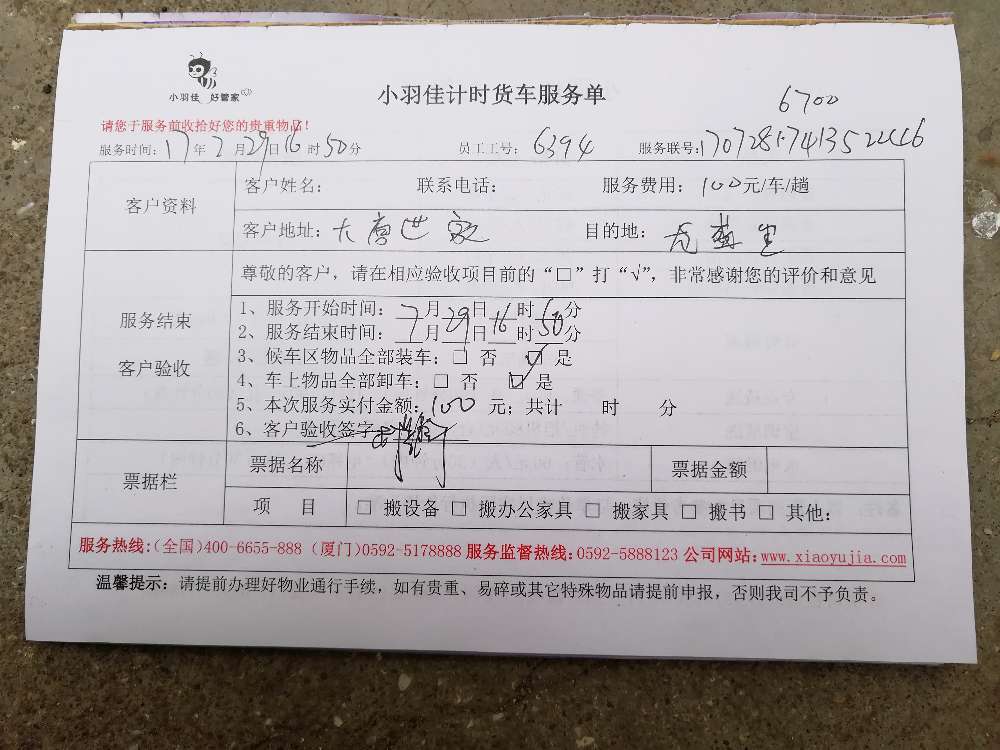 小羽佳 好管家
小羽佳计时货车服务单
6700
请您于服务前收拾好您的贵重物品!
服务时间: 17年 7月 29日 16时 50分 员工工号: 6394 服务联号:
客户资料
客户姓名: 联系电话: 服务费用: 100元/车/趟
客户地址: 大唐世家 目的地:
服务结束
客户验收
尊敬的客户，请在相应验收项目前的“□”打“√”，非常感谢您的评价和意见
1、服务开始时间: 7月29日16时 分
2、服务结束时间: 7月29日16时50分
3、候车区物品全部装车: □ 否 ☑ 是
4、车上物品全部卸车: □ 否 ☑ 是
5、本次服务实付金额: 100 元; 共计 时 分
6、客户验收签字
票据栏
票据名称 票据金额
项 目 □ 搬设备 □ 搬办公家具 □ 搬家具 □ 搬书 □ 其他:
服务热线:(全国)400-6655-888 (厦门)0592-5178888 服务监督热线:0592-5888123 公司网站: www.xiaoyujia.com
温馨提示: 请提前办理好物业通行手续，如有贵重、易碎或其它特殊物品请提前申报，否则我司不予负责。